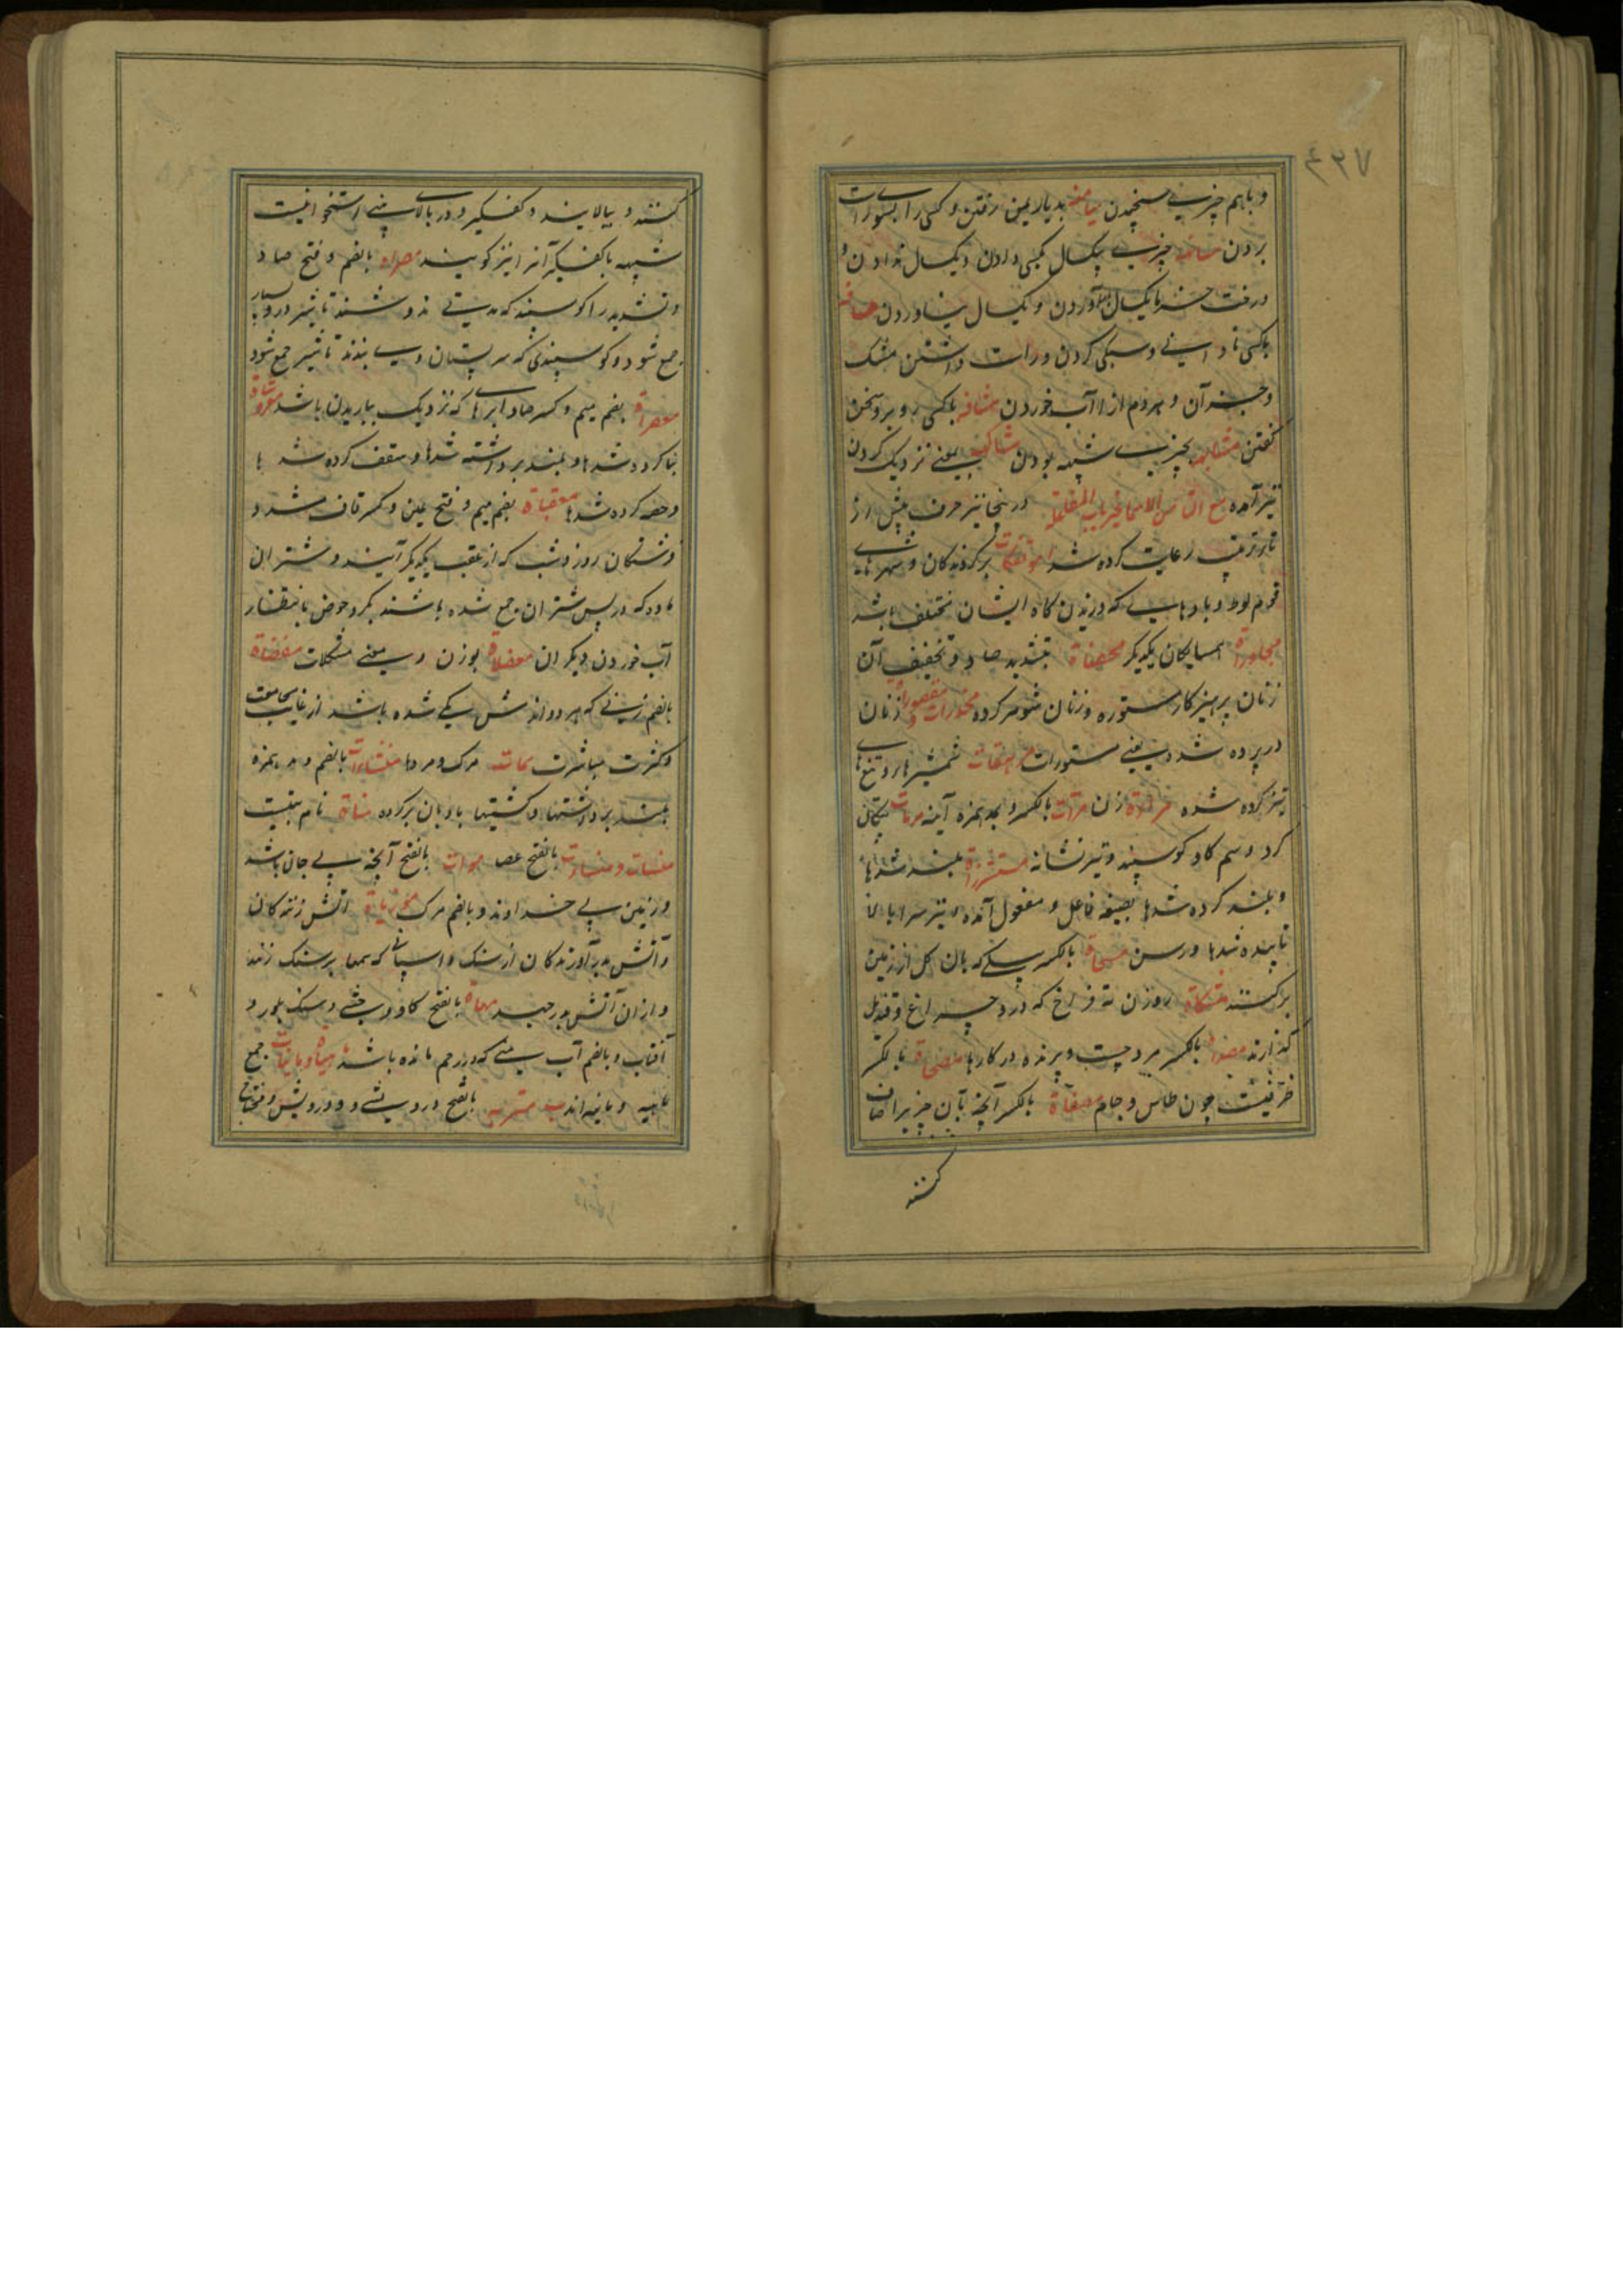 ۴۳۷
و باهم چیزی سنجیدن میامنه بدیار یمن رفتن و کسی را بسوی راست
بردن مسانهه چیزی یکسال بکسی دادن و یکسال ندادن و
درخت خرما یکسال بار آوردن و یکسال نیاوردن
با کسی نادانی و سبکی کردن و راست داشتن مشک
و جز آن و هر دم از آن آب خوردن مشافهه با کسی رو برو سخن
گفتن مشابهه بچیزی شبیه بودن مشاکهه بمعنی نزدیک کردن
نیز آمده مع التاء من الاسماء غیر باب المفاعله در نیجا نیز حرف پیش از
تا بترتیب رعایت کرده شد موتفکات برگردندگان و شهرهای
قوم لوط و بادهایی که وزیدن گاه ایشان مختلف باشد
مجاورات همسایگان یکدیگر محصنات بتشدید صاد و تخفیف آن
زنان پرهیزکار مستوره و زنان شوهر کرده مخدرات و مقصورات زنان
در پرده شده یعنی مستورات مرهفات شمشیرها و تیغهای
تیز کرده شده مرأة زن مرآت بالکسر و مد همزه آینه مرمات پیکان
گرد و سم گاو و گوسپند و تیر نشانه مستشزرات بلند شدها
و بلند کرده شدها بصیغه فاعل و مفعول آمده و نیز سر بالا
تابیده شدها و رسن مسحاة بالکسر بیلی که بان گل از زمین
برکنند مشکاة روزن نه فراخ که درو چراغ و قندیل
گذارند بالکسر مرد چست و پرنده در کارها مصحاة بالکسر
ظرفیست چون طاس و جام مصفاة بالکسر آنچه بآن چیز را صاف
کنند
کنند و بپالایند و کفگیر و در بالای بینی استخوانیست
شبیه بکفگیر آنرا نیز گویند مصراه بالضم و فتح صاد
و تشدید را گوسپند که مدتی ندوشند تا شیر در و بسیار
جمع شود و گوسپندی که سر پستان وی ببندند تا شیر جمع شود
معصرات بضم میم و کسر صاد ابرهایی که نزدیک بباریدن باشد معروشات
بنا کرده شدها و بلند برداشته شدها و سقف کرده شدها
و حفه کرده شدها معقبات بضم میم و فتح عین و کسر قاف مشدد
فرشتگان روز و شب که از عقب یکدیگر آیند و شتران
ماده که در پس شتران جمع شده باشند بگرد حوض بانتظار
آب خوردن دیگران معضلات بوزن و بمعنی مشکلات مفضاة
بالضم زنی که هر دو راهش یکی شده باشد از غایت مجامعت
و کثرت مباشرت ممات مرگ و مردها منشآت بالضم و مد همزه
بلند برداشتها و کشتیها بادبان برکرده مناة نام بتیست
منسات و منساءت بالفتح عصا موات بالفتح آنچه بی جان باشد
و زمین بی خداوند و بالضم مرگ موریات آتش زنندگان
و آتش بدر آورندگان از سنگ و اسپانی که سمها بر سنگ زنند
و از آن آتش بدر جهد مهاة بالفتح گاو وحشی و سنگ بلور و
آفتاب و بالضم آب منی که در رحم مانده باشد میاه و مایات جمع
ماهیه و مانیه اند متربه بالفتح درویشی و درویش و محتاج